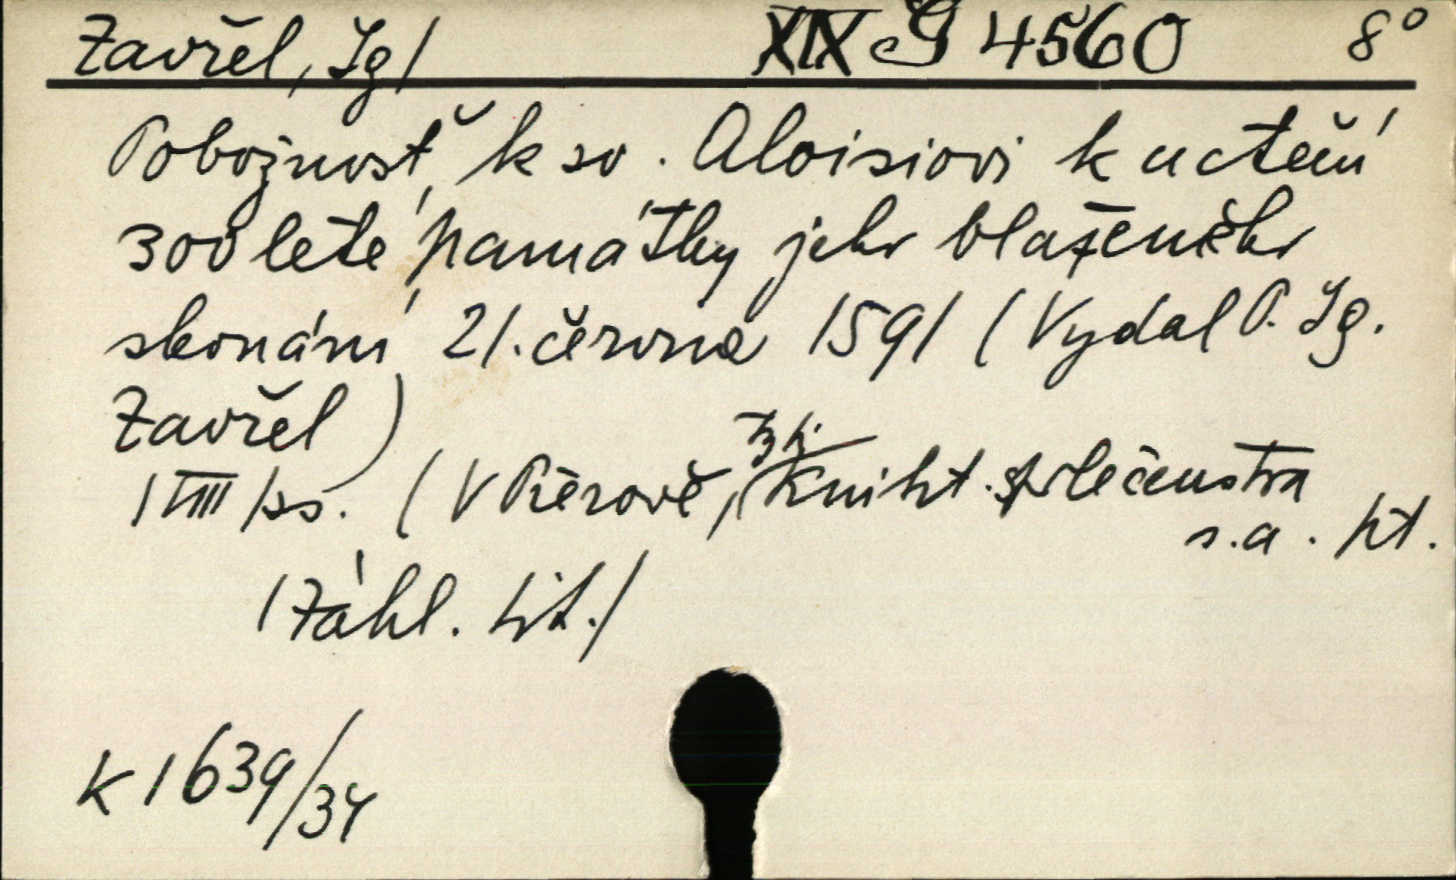 Zavřel, Ig/ XIX G 4560 8°
Pobožnosť k sv. Aloisiovi k uctění
300 leté památky jeho blaženého
skonání 21. června 1591 (Vydal P. Ig.
Zavřel)
/VIII/ss. (V Přerově, Kniht. společenstva
s.a. kt.
/Záhl. tit./
K 1639/34